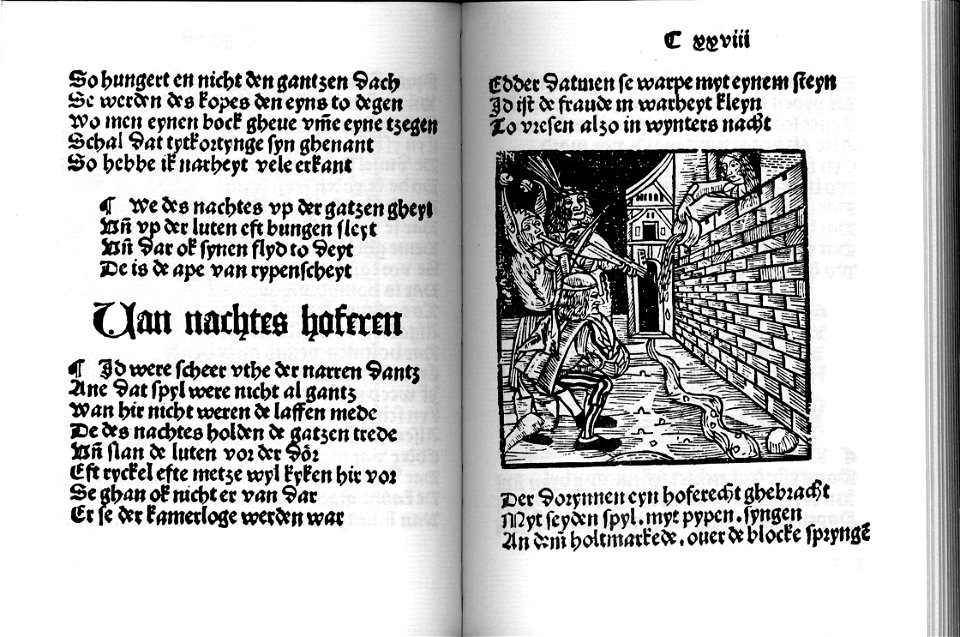 So hungert en nicht den gantzen dach
Se werden des kopes den eyns to degen
Wo men eynen bock gheue vm̄e eyne tzegen
Schal dat tytkortynge syn ghenant
So hebbe ik narheyt vele erkant
¶ We des nachtes vp der gatzen gheyt
Vn̄ vp der luten eft bungen sleyt
Vn̄ dar ok synen flyd to deyt
De is de ape van rypenscheyt
Van nachtes hoferen
¶ Id were scheer vthe der narren dantz
Ane dat spyl were nicht al gantz
Wan hir nicht weren de laffen mede
De des nachtes holden de gatzen trede
Vn̄ slan de luten vor der dör
Eft ryckel efte metze wyl kyken hir vor
Se ghan ok nicht er van dar
Er se der kamerloge werden war
C xxviii
Edder datmen se warpe myt eynem steyn
Id ist de fraude in warheyt kleyn
To vresen alzo in wynters nacht
Der dorynnen eyn hoferecht ghebracht
Myt seyden spyl. myt pypen. syngen
An dem holtmarkede. ouer de blocke spryngē